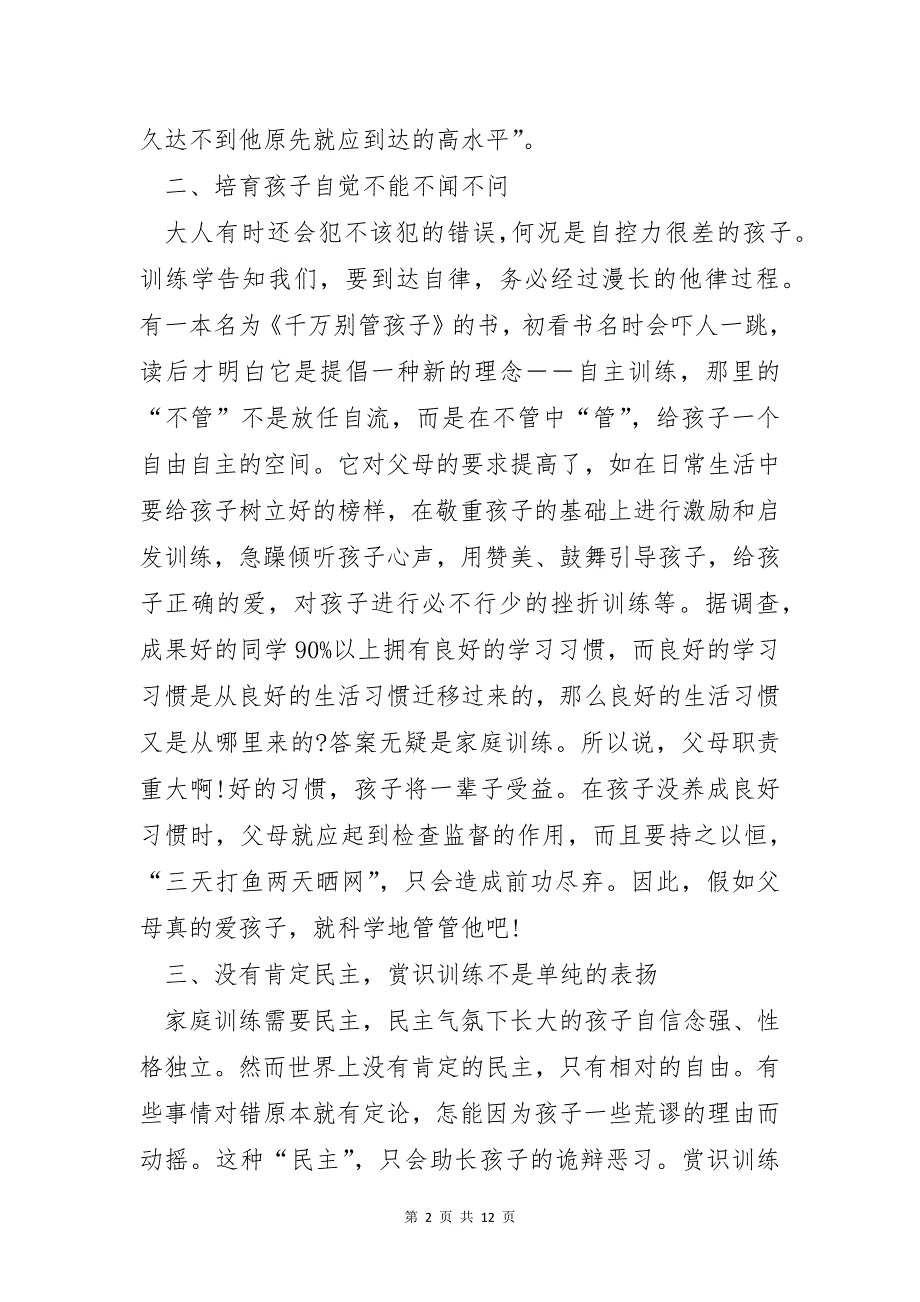 久达不到他原先就应到达的高水平”。
二、培育孩子自觉不能不闻不问
大人有时还会犯不该犯的错误，何况是自控力很差的孩子。
训练学告知我们，要到达自律，务必经过漫长的他律过程。
有一本名为《千万别管孩子》的书，初看书名时会吓人一跳，
读后才明白它是提倡一种新的理念－－自主训练，那里的
“不管”不是放任自流，而是在不管中“管”，给孩子一个
自由自主的空间。它对父母的要求提高了，如在日常生活中
要给孩子树立好的榜样，在敬重孩子的基础上进行激励和启
发训练，急躁倾听孩子心声，用赞美、鼓舞引导孩子，给孩
子正确的爱，对孩子进行必不行少的挫折训练等。据调查，
成果好的同学90%以上拥有良好的学习习惯，而良好的学习
习惯是从良好的生活习惯迁移过来的，那么良好的生活习惯
又是从哪里来的?答案无疑是家庭训练。所以说，父母职责
重大啊!好的习惯，孩子将一辈子受益。在孩子没养成良好
习惯时，父母就应起到检查监督的作用，而且要持之以恒，
“三天打鱼两天晒网”，只会造成前功尽弃。因此，假如父
母真的爱孩子，就科学地管管他吧!
三、没有肯定民主，赏识训练不是单纯的表扬
家庭训练需要民主，民主气氛下长大的孩子自信念强、性
格独立。然而世界上没有肯定的民主，只有相对的自由。有
些事情对错原本就有定论，怎能因为孩子一些荒谬的理由而
动摇。这种“民主”，只会助长孩子的诡辩恶习。赏识训练
第 2 页 共 12 页